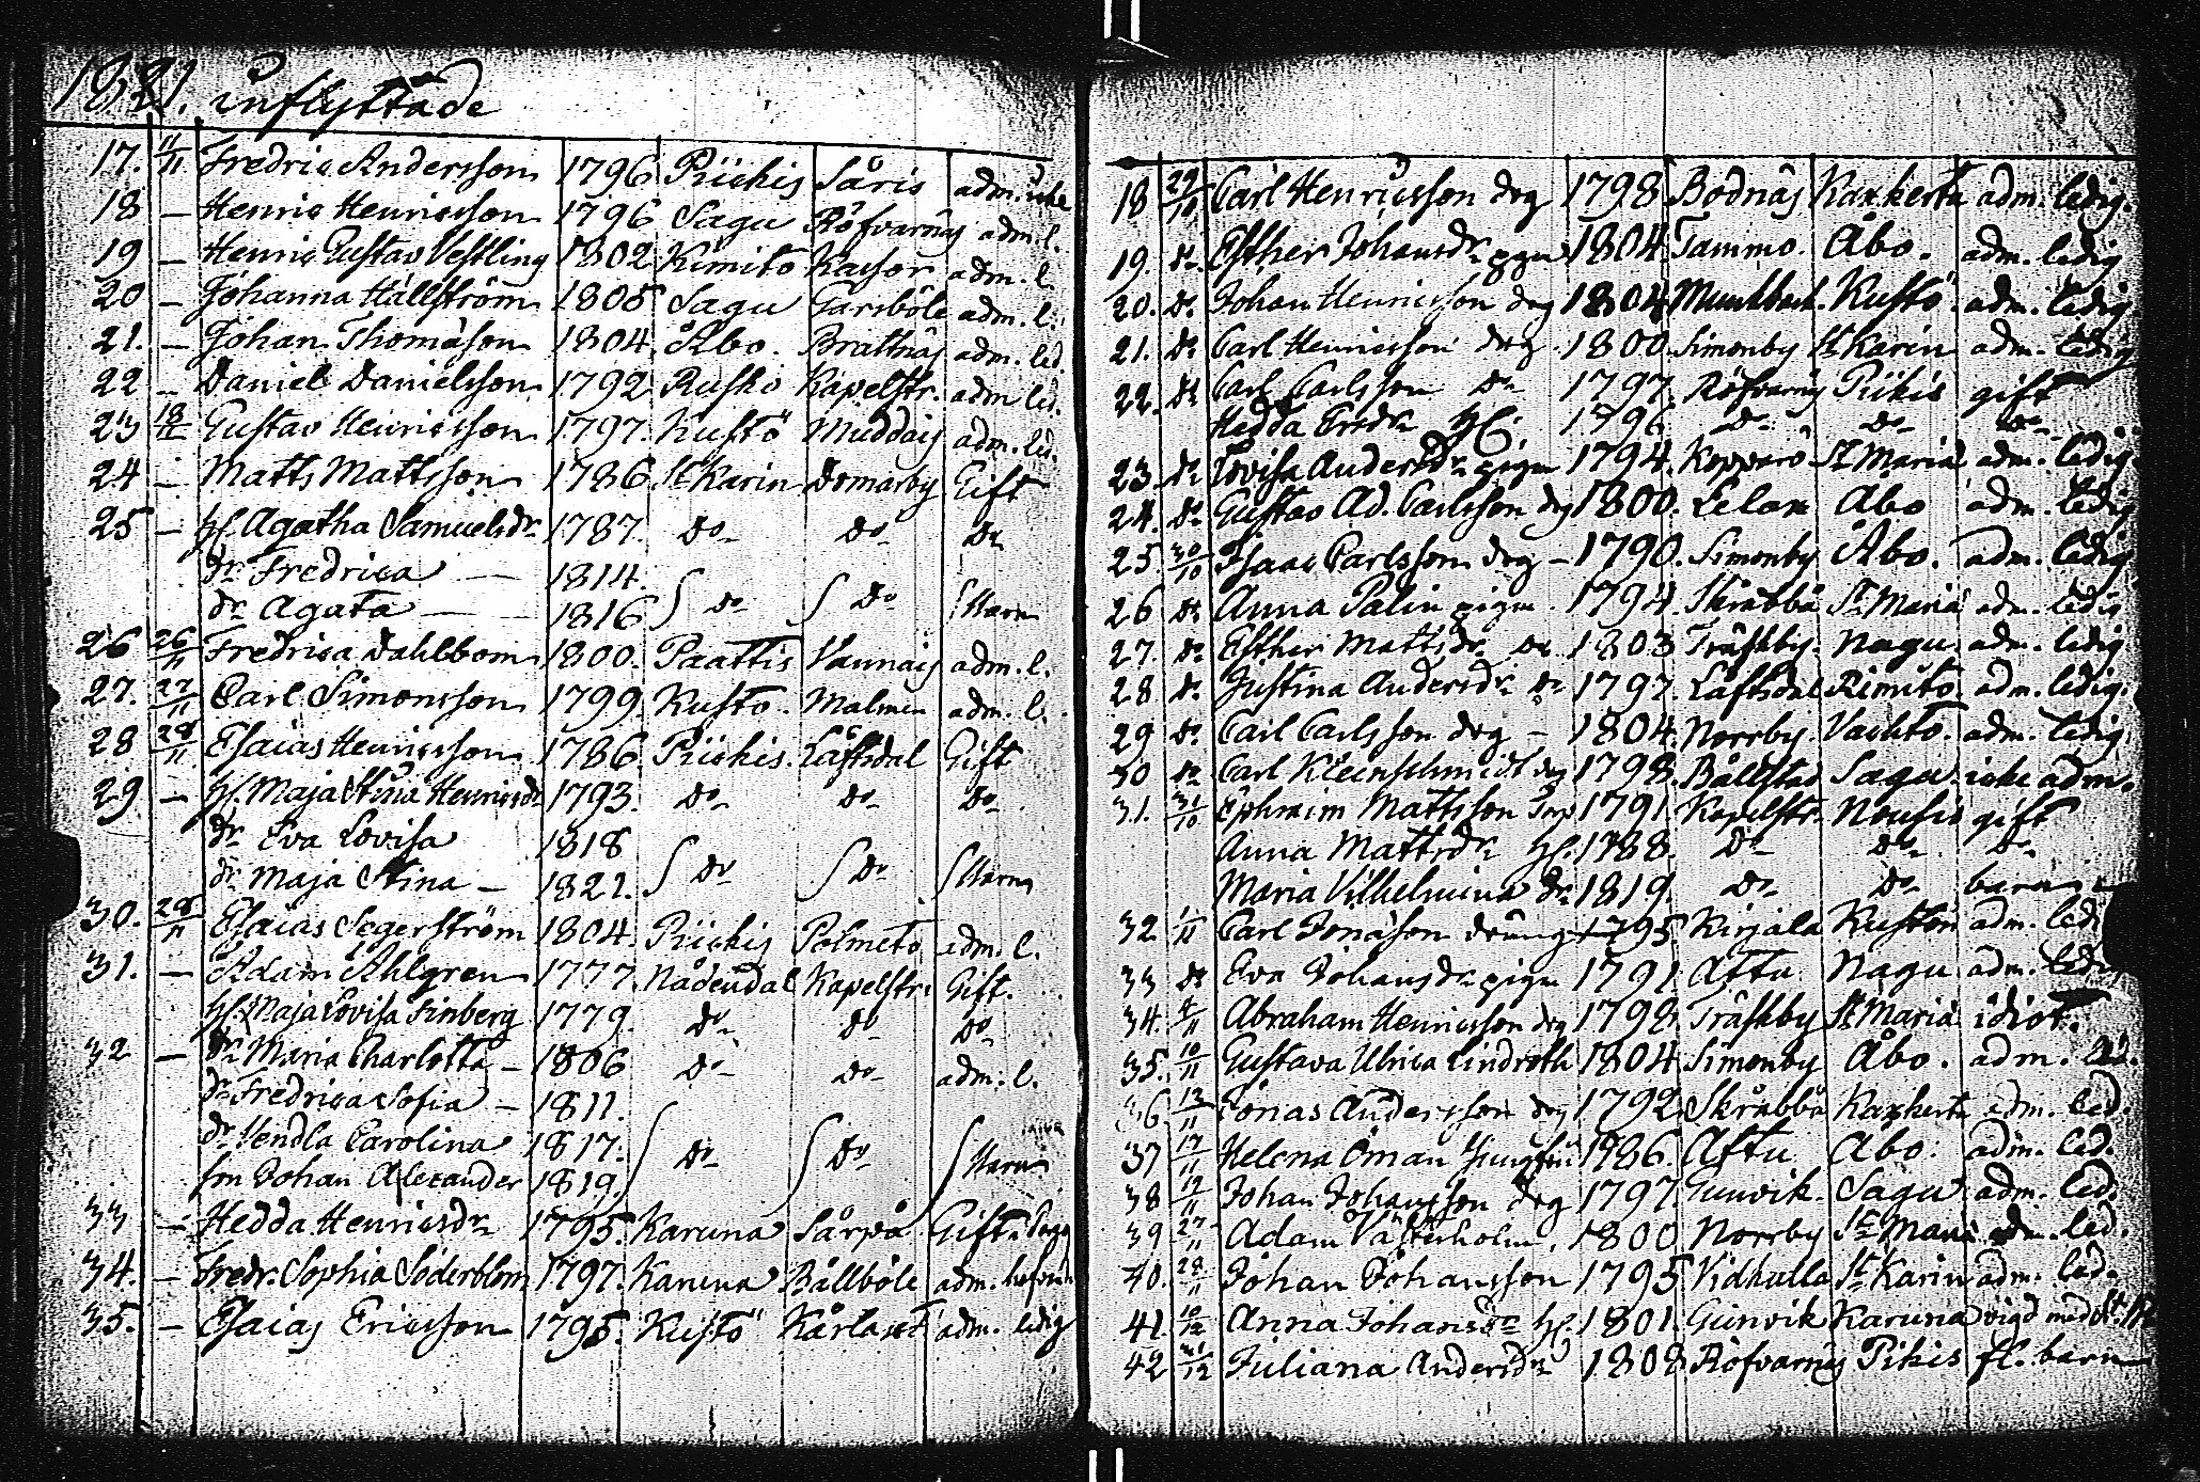 1821. inflyttade
17. 11/11 Fredric Andersson 1796 Piickis Såris adm. icke
18 — Henric Henricsson 1796 Sagu Röfvarnäs adm. l.
19 — Henric Gustav Vestling 1802 Kimito Kaisor adm. l.
20 — Johanna Hällström 1805 Sagu Garsböle adm. l.
21. — Johan Thomasson 1804. Åbo. Brattnäs adm. led.
22 — Daniel Danielsson 1792 Rusko Kapelstr. adm led.
23 Gustav Henricsson 1797. Kustö Muddais adm. led.
24 — Matts Mattsson 1786. St Karin Domarby Gift
25 — H. Agatha Samuelsdr 1787. do do do
dr Fredrica — 1814.
dr Agata — 1816 do do barn
26 26/11 Fredrica Dahlbom 1800. Paattis Vannais adm. l.
27. 27/11 Carl Simonsson 1799. Kusto. Malmen adm. l.
28 28/11 Esaias Henricsson 1786 Piickis. Låftsdal Gift
29 — H. Maja Stina Henricsdr 1793. do do do
dr Eva Lovisa 1818
dr Maja Stina — 1821. do do barn
30. 28/11 Esaias Segerström 1804. Piickis Polmeto adm. l.
31. — Adam Ahlgren 1777. Nådendal Kapelstr. Gift.
H. Maja Lovisa Finberg 1779. do do do
32 — dr Maria Charlotta — 1806 do do adm. l.
dr Fredrica Sofia — 1811.
dr Vendla Carolina 1817.
son Johan Alexander 1819. do do barn
33 — Hedda Henricsdr 1795. Karuna Särpå Gift.
34. — Fredr. Sophia Söderblom 1797. Karuna Bållböle adm.
35. — Esaias Ericsson 1795. Kustö Kärlaxt adm. ledig
18 29/10 Carl Henricsson drg 1798 Bodnäs Kaxkerta adm. ledig.
19. do Esther Johansdr pigan 1804. Tammo. Åbo. adm. ledig
20. do Johan Henricsson drg 1804 Munkback. Kustö. adm. ledig
21. do Carl Henricsson drg. 1800. Simonby St Karin adm. ledig
22. do Carl Carlsson do 1797. Röfvarnäs Piikis gift
Hedda Ersdr H. 1796 do do do
23. do Lovisa Andersdr pigan 1794. Kopparö St Maria adm. ledig.
24. do Gustav Ad. Carlsson drg 1800. Lelax Åbo adm. ledig
25. 30/10 Isaac Carlsson drg — 1790. Simonby Åbo. adm. ledig
26 do Anna Palin pigan. 1794. Skräbbä St Maria adm. ledig
27. do Esther Mattsdr do 1803 Träskby. Nagu adm. ledig
28 do Justina Andersdr do 1797. Låftsdal Kimito adm. ledig.
29 do Carl Carlsson drg — 1804. Norrby. Vachto. adm. ledig
30 do Carl Kleinschmidt drg 1798. Bållstad Sagu icke adm.
31. 31/10 Ephraim Mattsson 1791. Kapelstr. Nousis gift
Anna Mattsdr H. 1788. do do do
Maria Vilhelmina dr 1819. do do barn
32 1/11 Carl Jonasson dräng 1795 Kirjala Kustön adm. ledi
33 do Eva Johansdr pigan 1791 Attu Nagu adm. ledig
34. 4/11 Abraham Henricsson drg 1792. Träskby St Maria idiot.
35. 10/11 Gustava Ulrica Lindroth 1804 Simonby Åbo. adm. led.
36 13/11 Jonas Andersson drg 1792. Skräbbä Kaxkerta adm. led.
37 17/11 Helena Öman Jungfru 1786. Attu Åbo. adm. led.
38 19/11 Johan Johansson drg 1797. Gunvik. Sagu adm. led.
39 27/11 Adam Västerholm, 1800 Norrby St Maria adm. led.
40. 28/11 Johan Johansson 1795 Vidhulla St Karin adm. led.
41. 10/12 Anna Johansdr H. 1801. Gunvik Karuna vigd med
42 31/12 Juliana Andersdr 1808 Röfvarnäs Pikis fl. barn